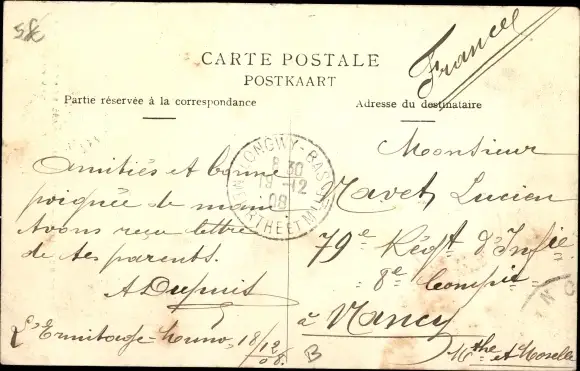 58
France
CARTE POSTALE
POSTKAART
Partie réservée à la correspondance
Adresse du destinataire
LONGWY-BAS
8 30
19 -12
08
MRTHE ET MLLE
Amitiés et bonne
poignée de main
Avons reçu lettre
de tes parents.
ADupuis
L'Ermitage 18/12/08.
Monsieur
Navet Lucien
79e Régt d'Infie
8e Compie
à Nancy
Mthe et Moselle
B